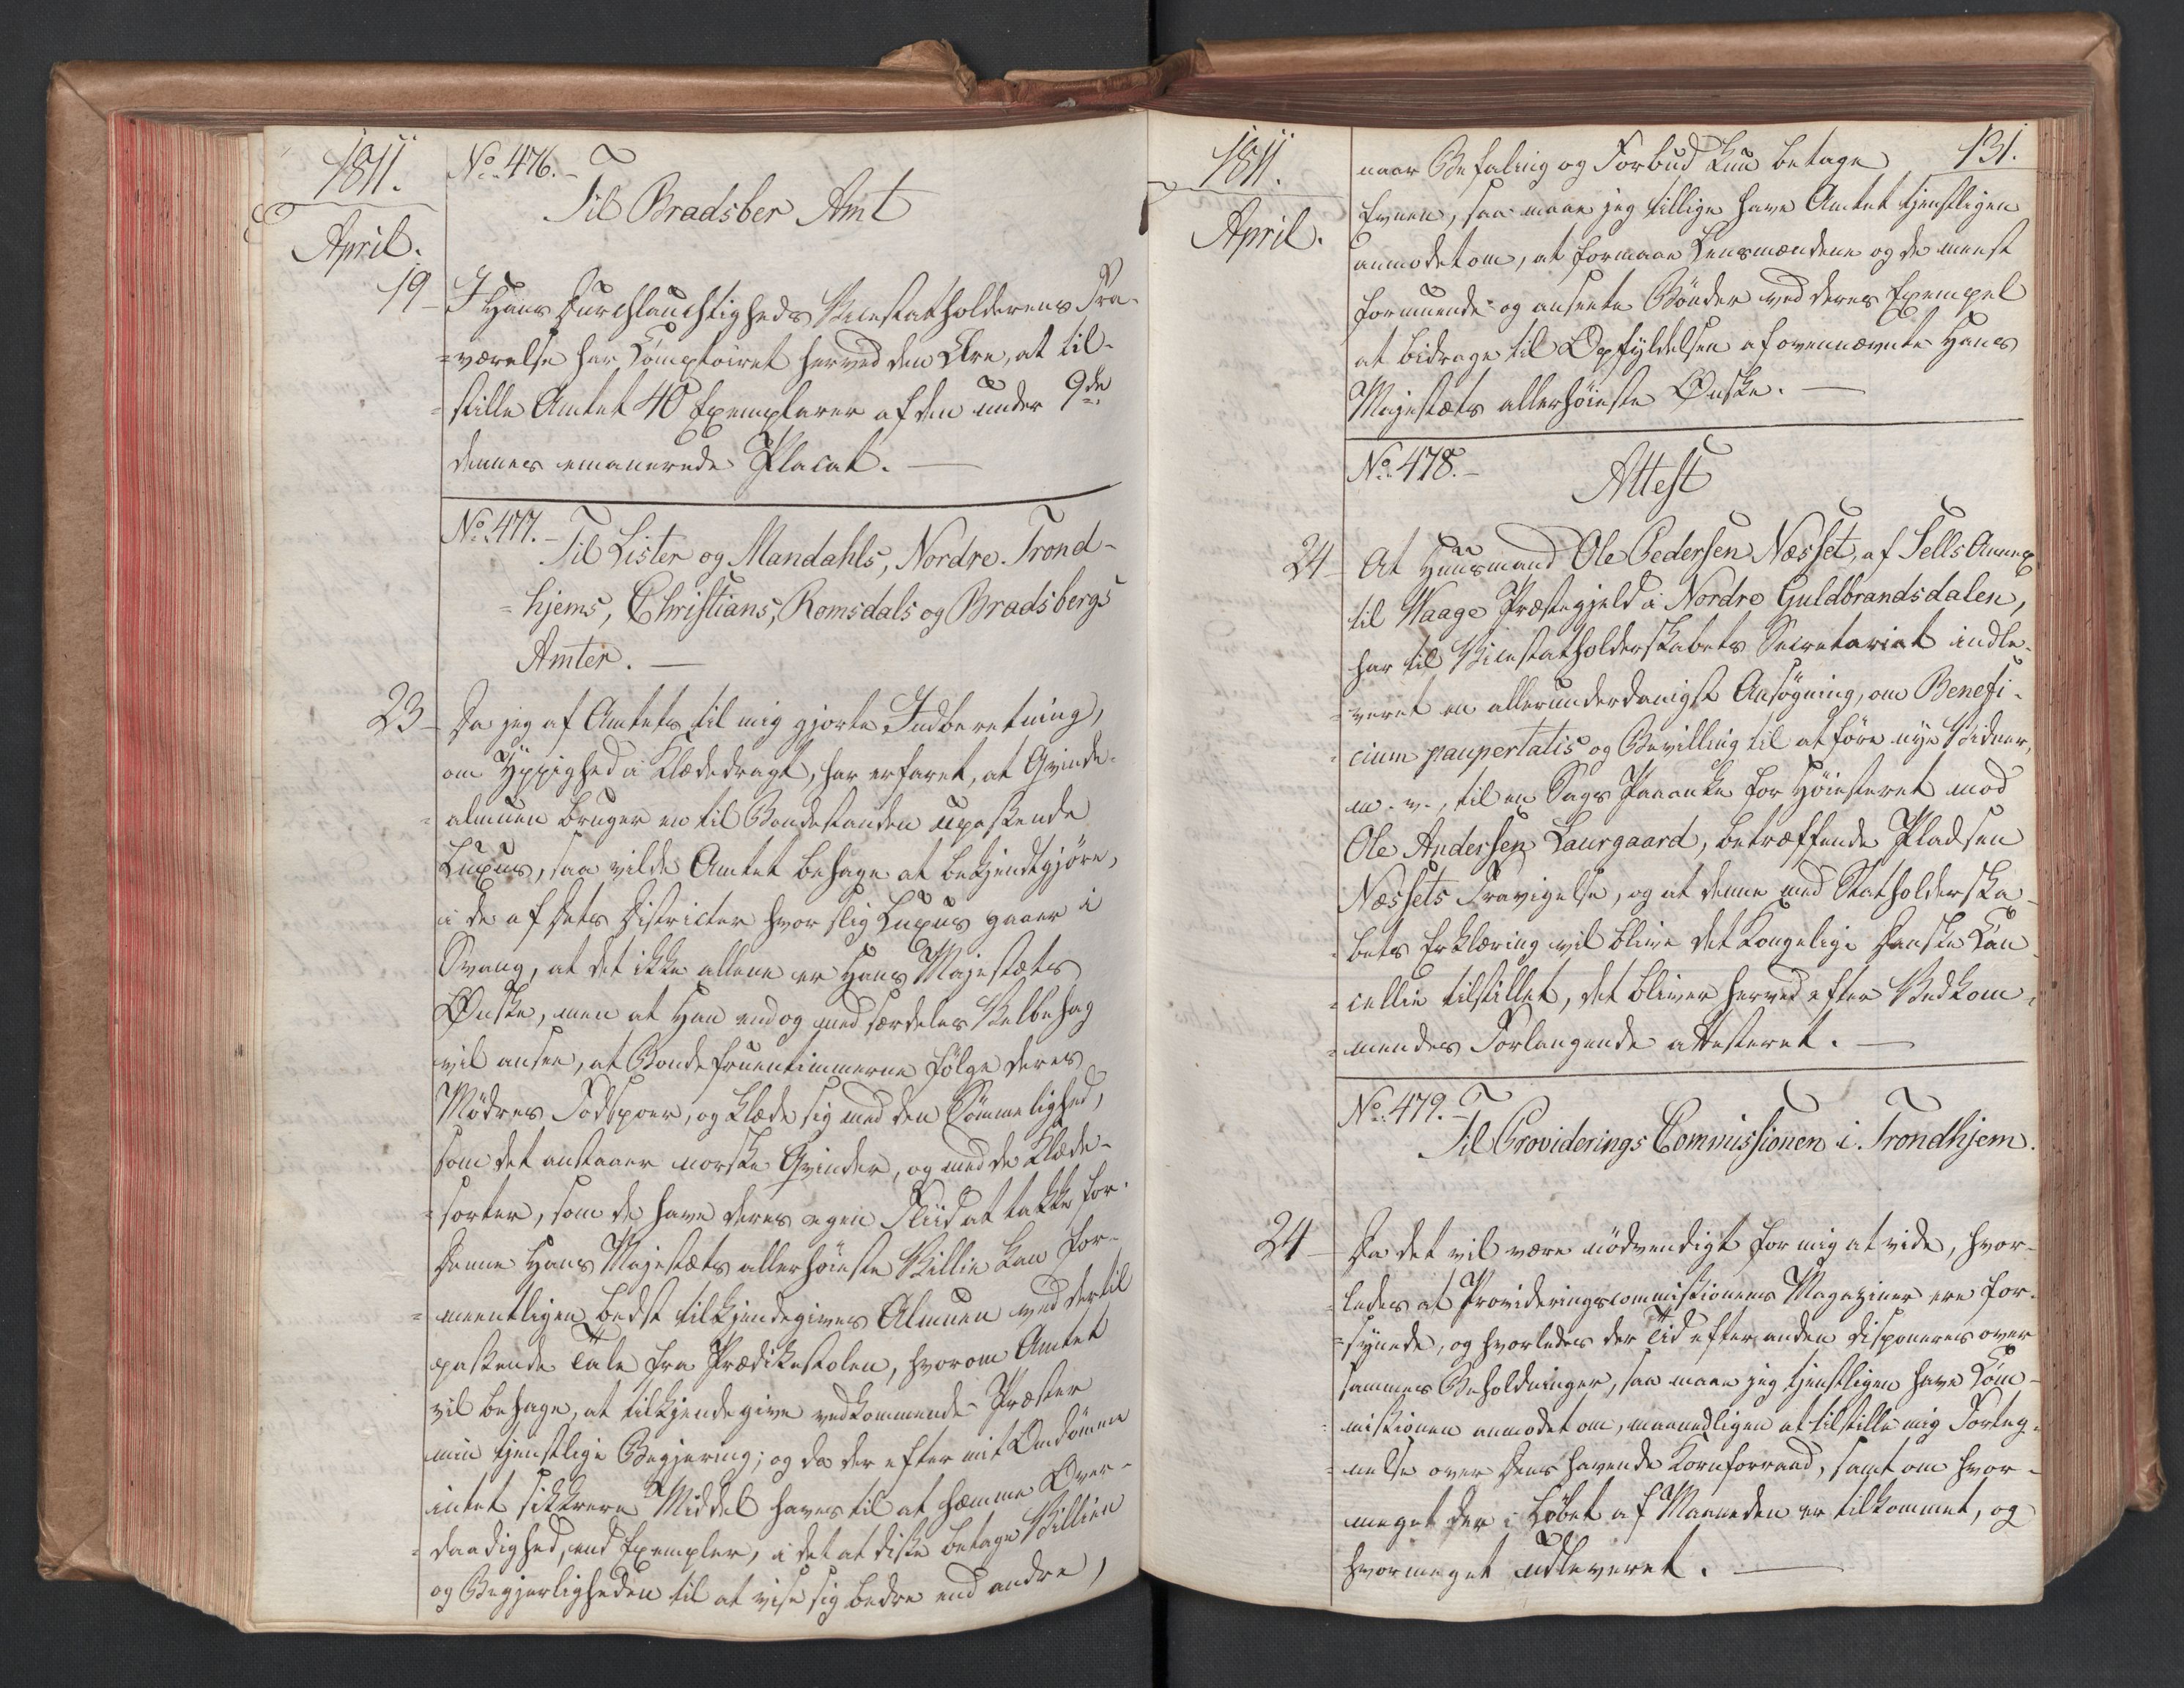 1811.
April.
No. 476.
Til Bradsber Amt
19 I Hans Durchlauchtigheds Vicestatholderens Fra-
=værelse har Comptoiret herved den Ære, at til-
=stille Amtet 40 Exemplarer af den under 9de
dennes emanerede Placat. —
No. 477.
Til Lister og Mandahls, Nordre-Trond-
=hjems, Christians, Romsdals og Bradsbergs
Amter. —
23 Da jeg af Amtets til mig gjorte Indberetning,
om Yppighed i Klædedragt, har erfaret, at Qvinde-
=almuen bruger en til Bondestanden upassende
Luxus, saa vilde Amtet behage at bekjendtgjöre,
i de af dets Districter hvor slig Luxus gaaer i
Svang, at det ikke allene er Hans Majestæts
Ønske, men at Han endog med særdeles Velbehag
vil ansee, at Bondefruentimmerne fölge deres
Mödres Fodspoer, og klæde sig med den Sömmelighed,
som det anstaaer norske Qvinder, og med de Klæde-
=sorter, som de have deres egen Fliid at takke for.
Denne Hans Majestæts allerhöieste Villie kan for-
=meentligen bedst tilkjendegives Almuen ved dertil
passende Tale fra Prædikestolen, hvorom Amtet
vil behage, at tilkjendegive vedkommende Præster
min tjenstlige Begjering; og da der efter mit Omdömme
intet sikkrere Middel haves til at hæmme Over-
=daadighed, end Exempler, i det at disse betage Villien
og Begjerligheden til at vise sig bedre end andre,
1811.
April.
131.
naar Befaling og Forbud kun betage
Evnen, saa maae jeg tillige have Amtet tjenstligen
anmodet om, at formaae Lensmændene og de meest
formuende og ansete Bönder ved deres Exempel
at bidrage til Opfyldelsen af ovennævnte Hans
Majestæts allerhöieste Ønske. —
No. 478.
Attest
24 At Huusmand Ole Pedersen Næsset, af Sells Annex
til Waage Præstegjeld i Nordre Guldbrandsdalen,
har til Vicestatholderskabets Secretariat indle-
=veret en allerunderdanigst Ansögning, om Benefi-
=cium paupertatis og Bevilling til at före nye Vidner,
m. v., til en Sags Paaanke for Höiesteret mod
Ole Andersen Laurgaard, betræffende Pladsen
Næssets Fravigelse, og at denne med Statholderska-
=bets Erklæring vil blive det Kongelige danske Can-
=cellie tilstillet, det bliver herved efter Vedkom-
=mendes Forlangende attesteret. —
No. 479.
Til Providerings Commissionen i Trondhjem.
24 Da det vil være nödvendigt for mig at vide, hvor-
=ledes at Provideringscommissionens Magaziner ere for-
=synede, og hvorledes der Tid efter anden disponeres over
sammes Beholdninger, saa maae jeg tjenstligen have Com-
=missionen anmodet om, maanedligen at tilstille mig Forteg-
=nelse over dens havende Kornforraad, samt om hvor-
meget der i Löbet af Maaneden er tilkommet, og
hvormeget udleveret. —